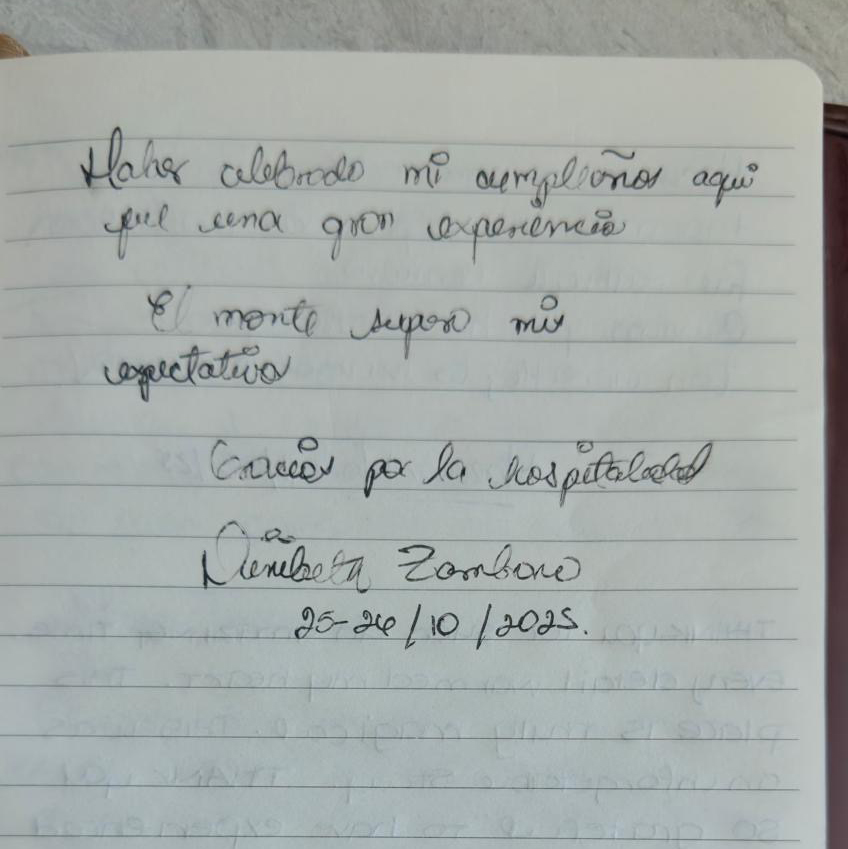 Haber celebrado mi cumpleaños aqui
fue una gran experiencia
El monte supero mis
expectativa
Gracias por la hospitalidad
Zambrano
25-26/10/2025.